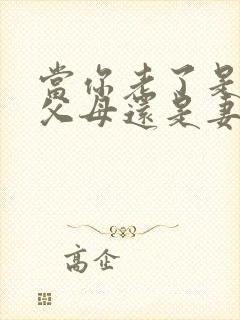 當你老了是
父母還是妻
高企